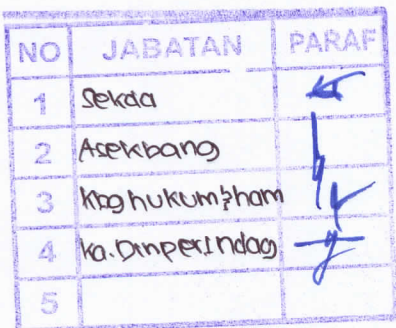 NO JABATAN PARAF
1 Sekda
2 Asekbang
3 Kbg hukum & ham
4 Ka. Dinperindag
5